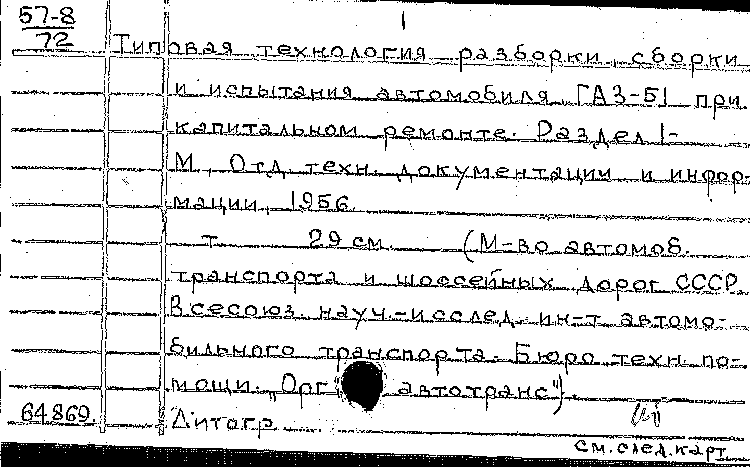 57-8
72
1
Типовая технология разборки, сборки
и испытания автомобиля ГАЗ-51 при
капитальном ремонте. Раздел 1-
М., Отд. техн. документации и инфор-
мации, 1956.
т. 29 см. (М-во автомоб.
транспорта и шоссейных дорог СССР.
Всесоюз. науч.-исслед. ин-т автомо-
бильного транспорта. Бюро техн. по-
мощи. „Орг автотранс").
64869. Литогр.
см. след. карт